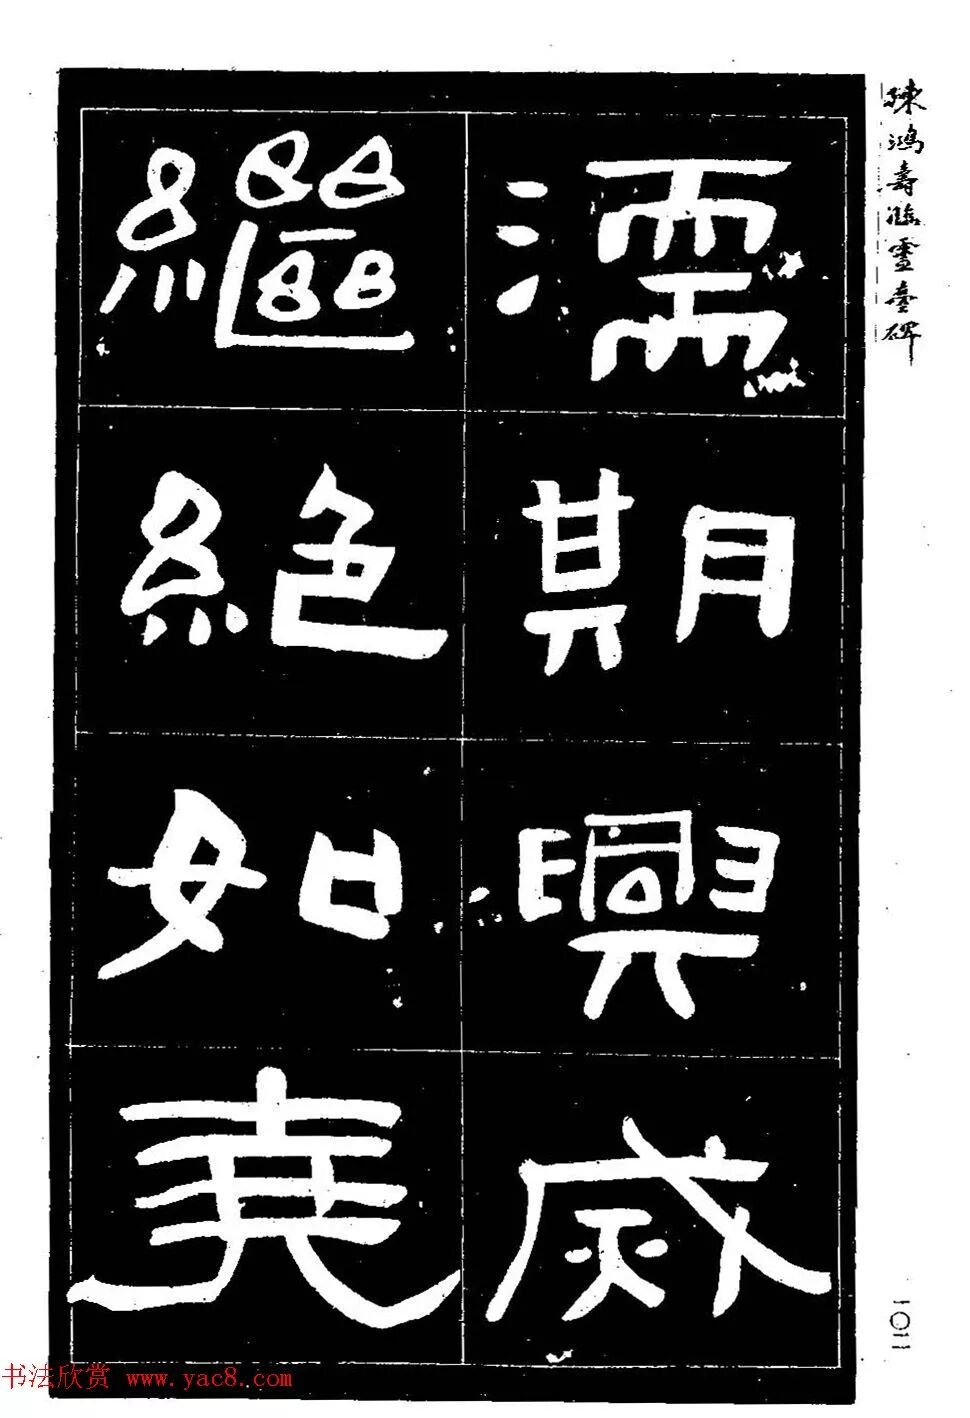 陳鴻壽臨靈臺碑
濡期興烕
繼絶如堯
一〇二
书法欣赏 www.yac8.com